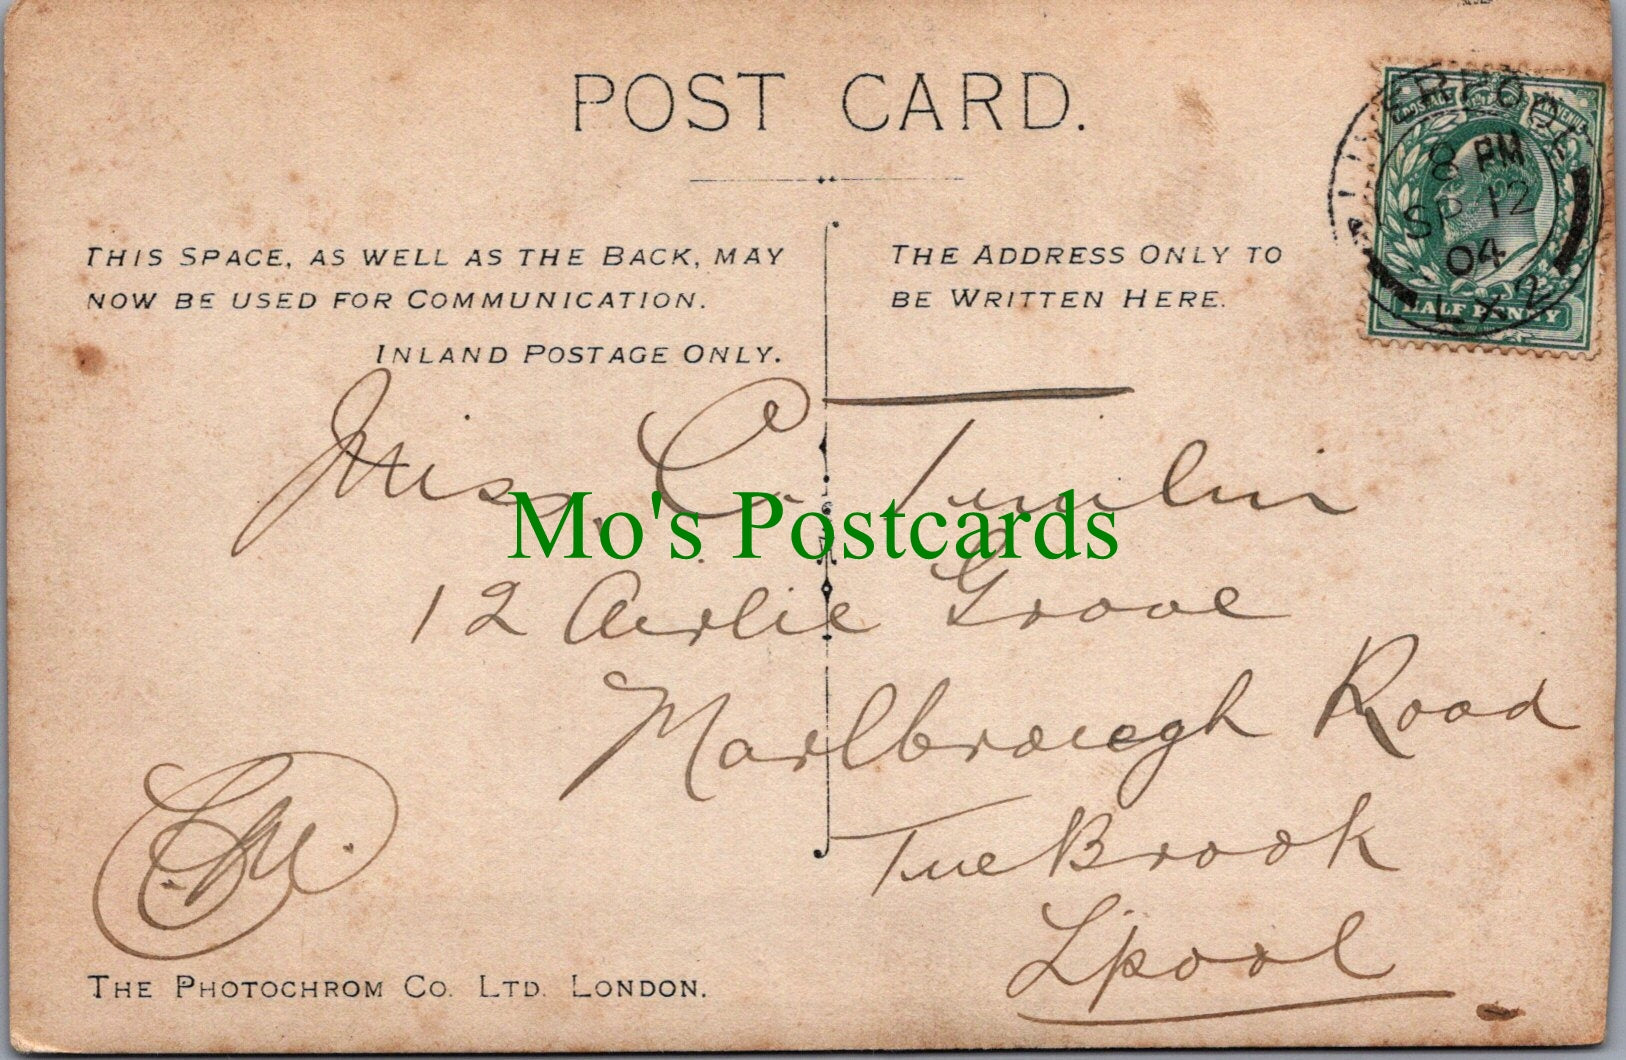 POST CARD.
THIS SPACE, AS WELL AS THE BACK, MAY
NOW BE USED FOR COMMUNICATION.
INLAND POSTAGE ONLY.
THE ADDRESS ONLY TO
BE WRITTEN HERE.
LIVERPOOL
8 PM
SP 12
04
LX2
HALF PENNY
Miss. C. Tumlin
Mo's Postcards
12 Airlie Grove
Marlborough Road
Tue Brook
L'pool
THE PHOTOCHROM CO. LTD. LONDON.